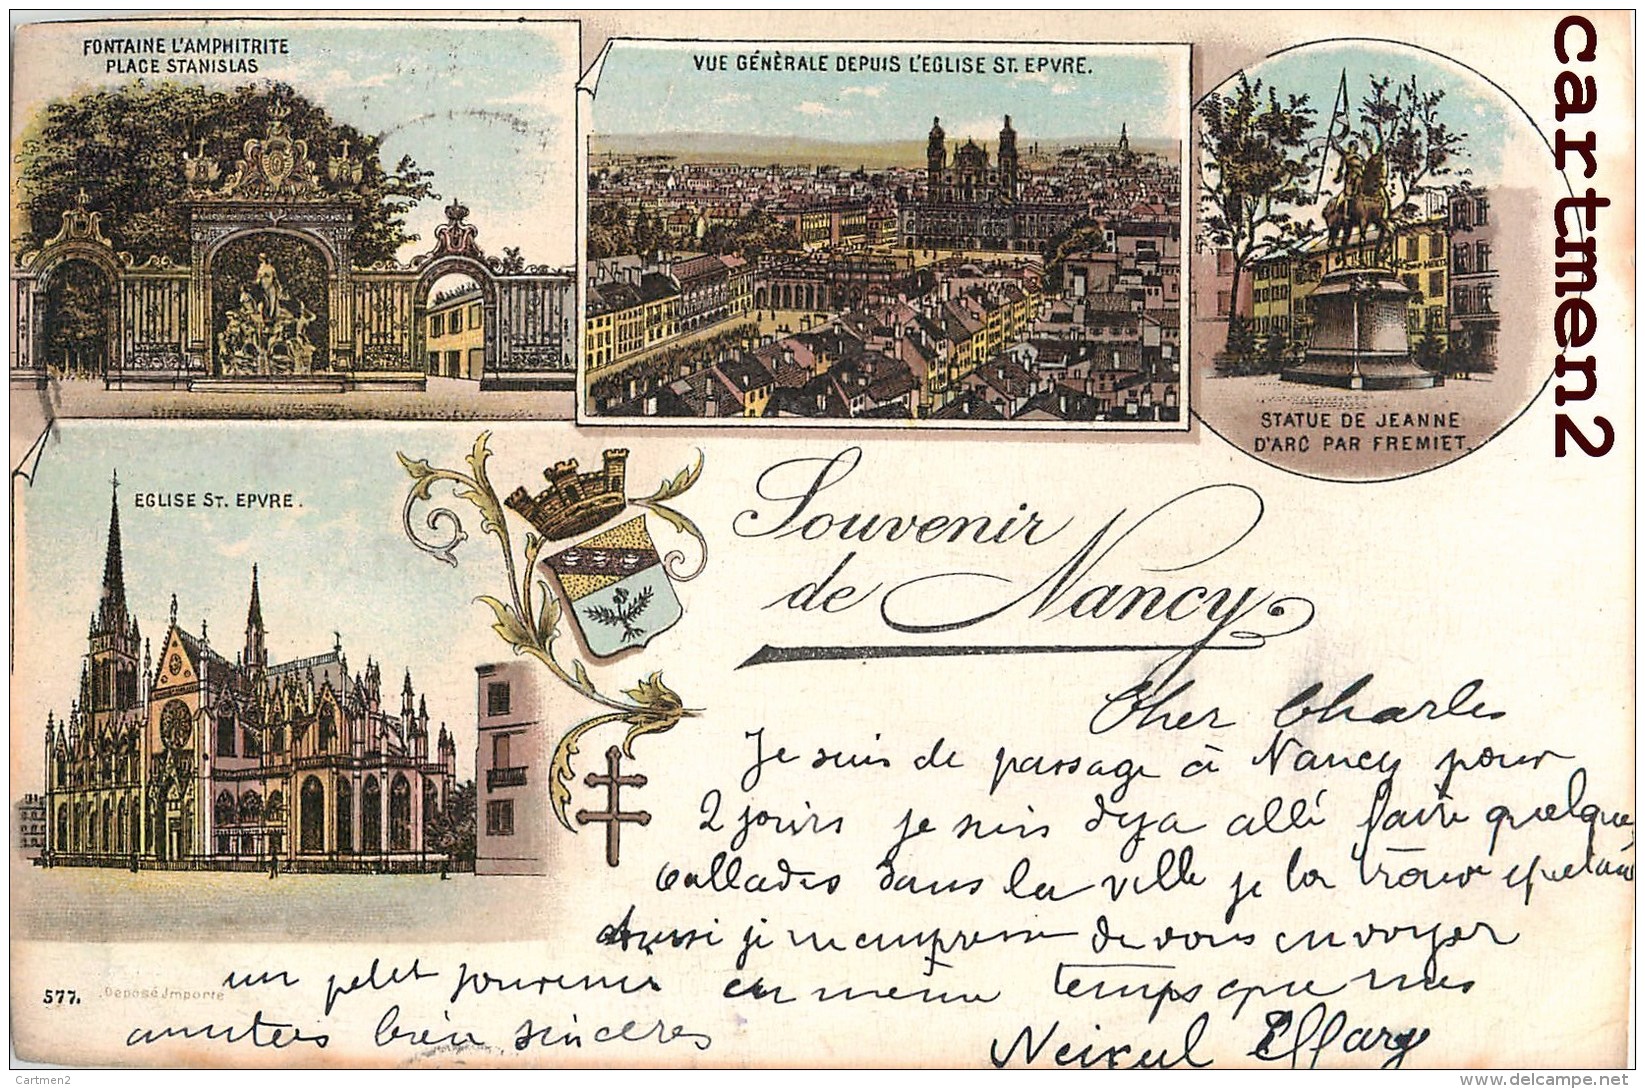 FONTAINE L'AMPHITRITE
PLACE STANISLAS
VUE GÉNÈRALE DEPUIS L'EGLISE ST. EPVRE.
STATUE DE JEANNE
D'ARC PAR FREMIET.
EGLISE ST. EPVRE.
Souvenir
de Nancy
Cher Charles
Je suis de passage à Nancy pour
2 jours je suis deja allé faire quelque
ballades dans la ville je la trouve
Aussi je m'empresse de vous envoyer
un petit souvenir en même temps que mes
amitées bien sincères
577. Deposé Importé
cartmen2
Cartmen2
www.delcampe.net